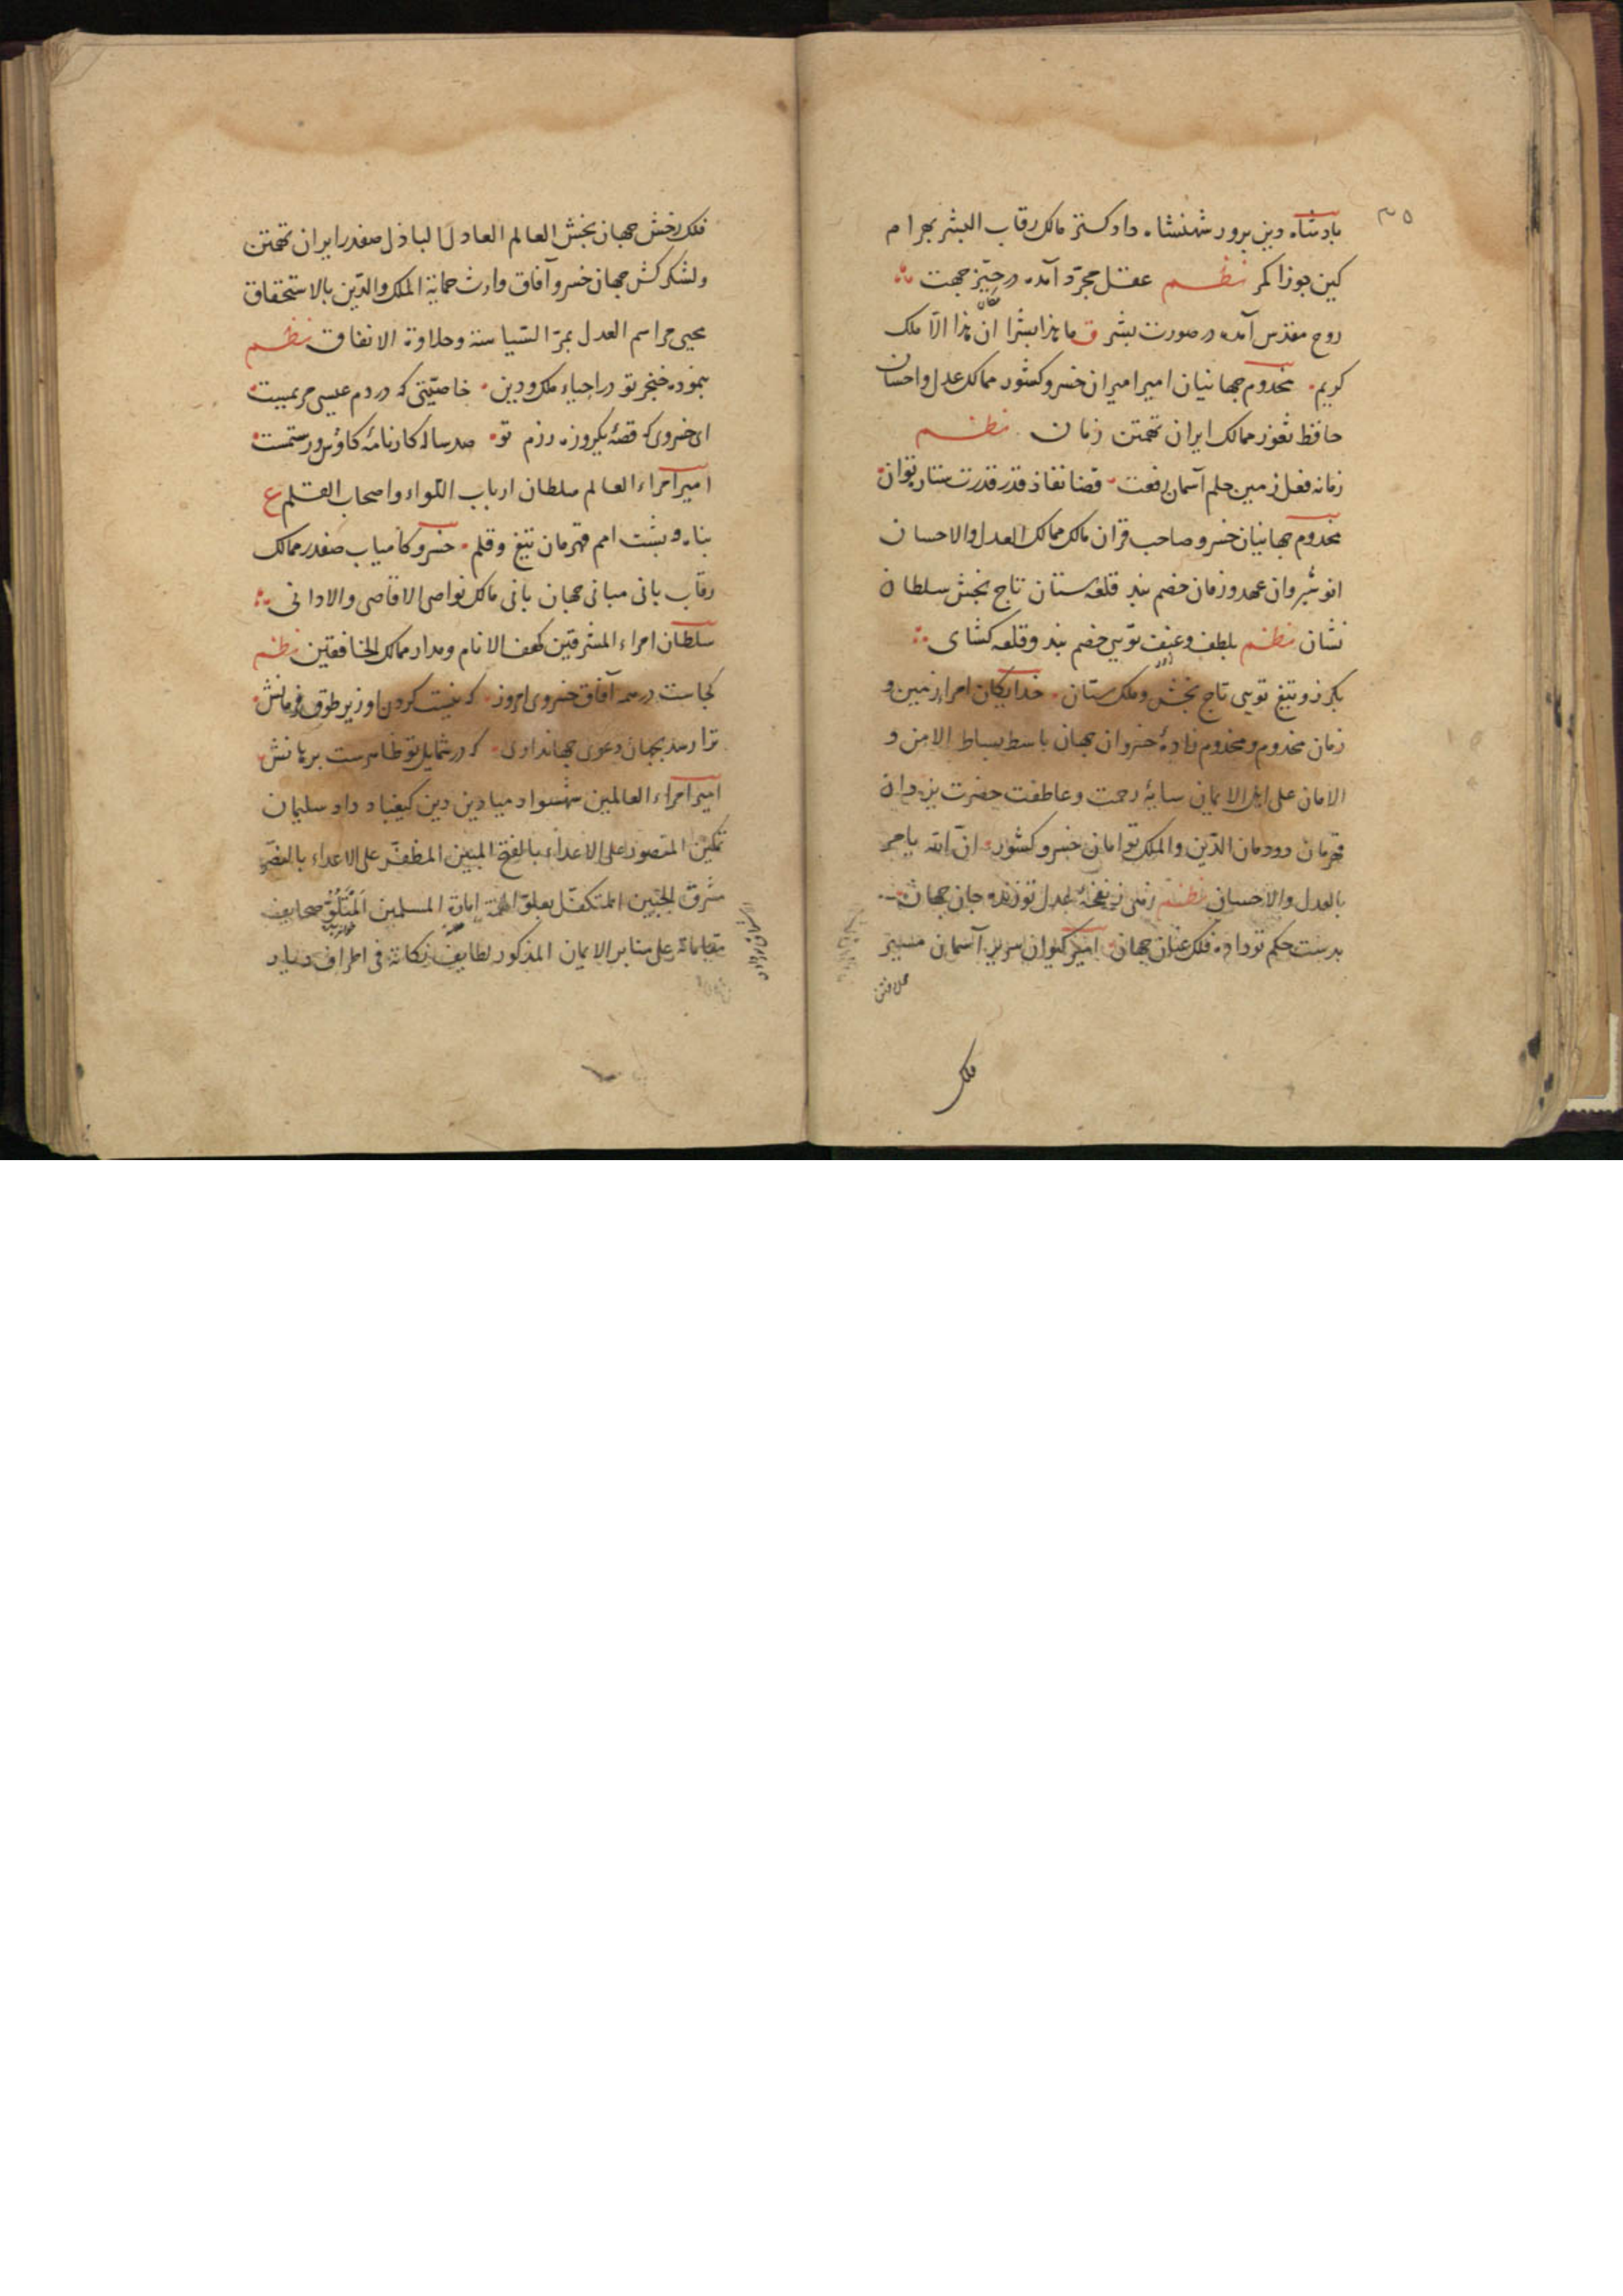 ۳۵
بادشاه دین پرور شهنشاه داد کستر مالک رقاب البشر بهرام
کین جوزا کمر نظم عقل مجرّد آمده در حیّز جهت
روح مقدس آمده در صورت بشر ق ما هذا بشرا ان هذا الّا ملک
کریم مخدوم جهانیان امیر امیران خسرو کشور ممالک عدل و احسان
حافظ ثغور ممالک ایران تهمتن زمان نظم
زمانه فعل زمین حلم آسمان رفعت قضا نفاذ قدر قدرت ستاره توان
مخدوم جهانیان خسرو صاحب قران مالک ممالک العدل والاحسان
انوشیروان عهد و زمان خصم بند قلعه ستان تاج بخش سلطان
نشان نظم بلطف و عنف تویی خصم بند و قلعه کشای
بکرز و تیغ تویی تاج بخش و ملک ستان خدایکان امراء زمین و
زمان مخدوم و مخدوم زادۀ خسروان جهان باسط بساط الامن و
الامان علی اهل الایمان سایۀ رحمت و عاطفت حضرت یزدان
قهرمان دودمان الدّین والملک توامان خسرو کشور انّ الله یامر
بالعدل والاحسان نظم زهی ز نفحۀ عدل تو زنده جان جهان
بدست حکم تو داده فلک عنان جهان امیر کیوان سریر آسمان مسیر
فلک
فلک رخش جهان بخش العالم العادل الباذل صفدر ایران تهمتن
ولشکرکش جهان خسرو آفاق وارث حمایة الملک والدّین بالاستحقاق
محیی مراسم العدل بمرّ السّیاسة وحلاوة الانفاق نظم
بنموده خنجر تو در احیاء ملک و دین خاصیّتی که در دم عیسی مریمست
ای خسروی که قصۀ یکروزه رزم تو صد ساله کارنامۀ کاؤس و رستمست
امیر امراء العالم سلطان ارباب اللّواء واصحاب القلم ع
پناه و پشت امم قهرمان تیغ و قلم خسرو کامیاب صفدر ممالک
رقاب بانی مبانی جهان بانی مالک نواصی الاقاصی والادانی
سلطان امراء المشرقین کهف الانام ومدار ممالک الخافقین نظم
کجاست در همه آفاق خسروی امروز که نیست کردن او زیر طوق فرمانش
ترا رسد بجهان دعوی جهانداری که در شمایل تو ظاهرست برهانش
امیر امراء العالمین شهسوار میادین دین کیقباد داد سلیمان
تمکین المنصور علی الاعداء بالفتح المبین المظفّر علی الاعداء بالنصر
مشرق الجبین المتکفّل بعلوّ الهمّة امان المسلمین المَتلُوّ صحایف
مقاماته علی منابر الایمان المذکور لطایف نکاته فی اطراف دیار